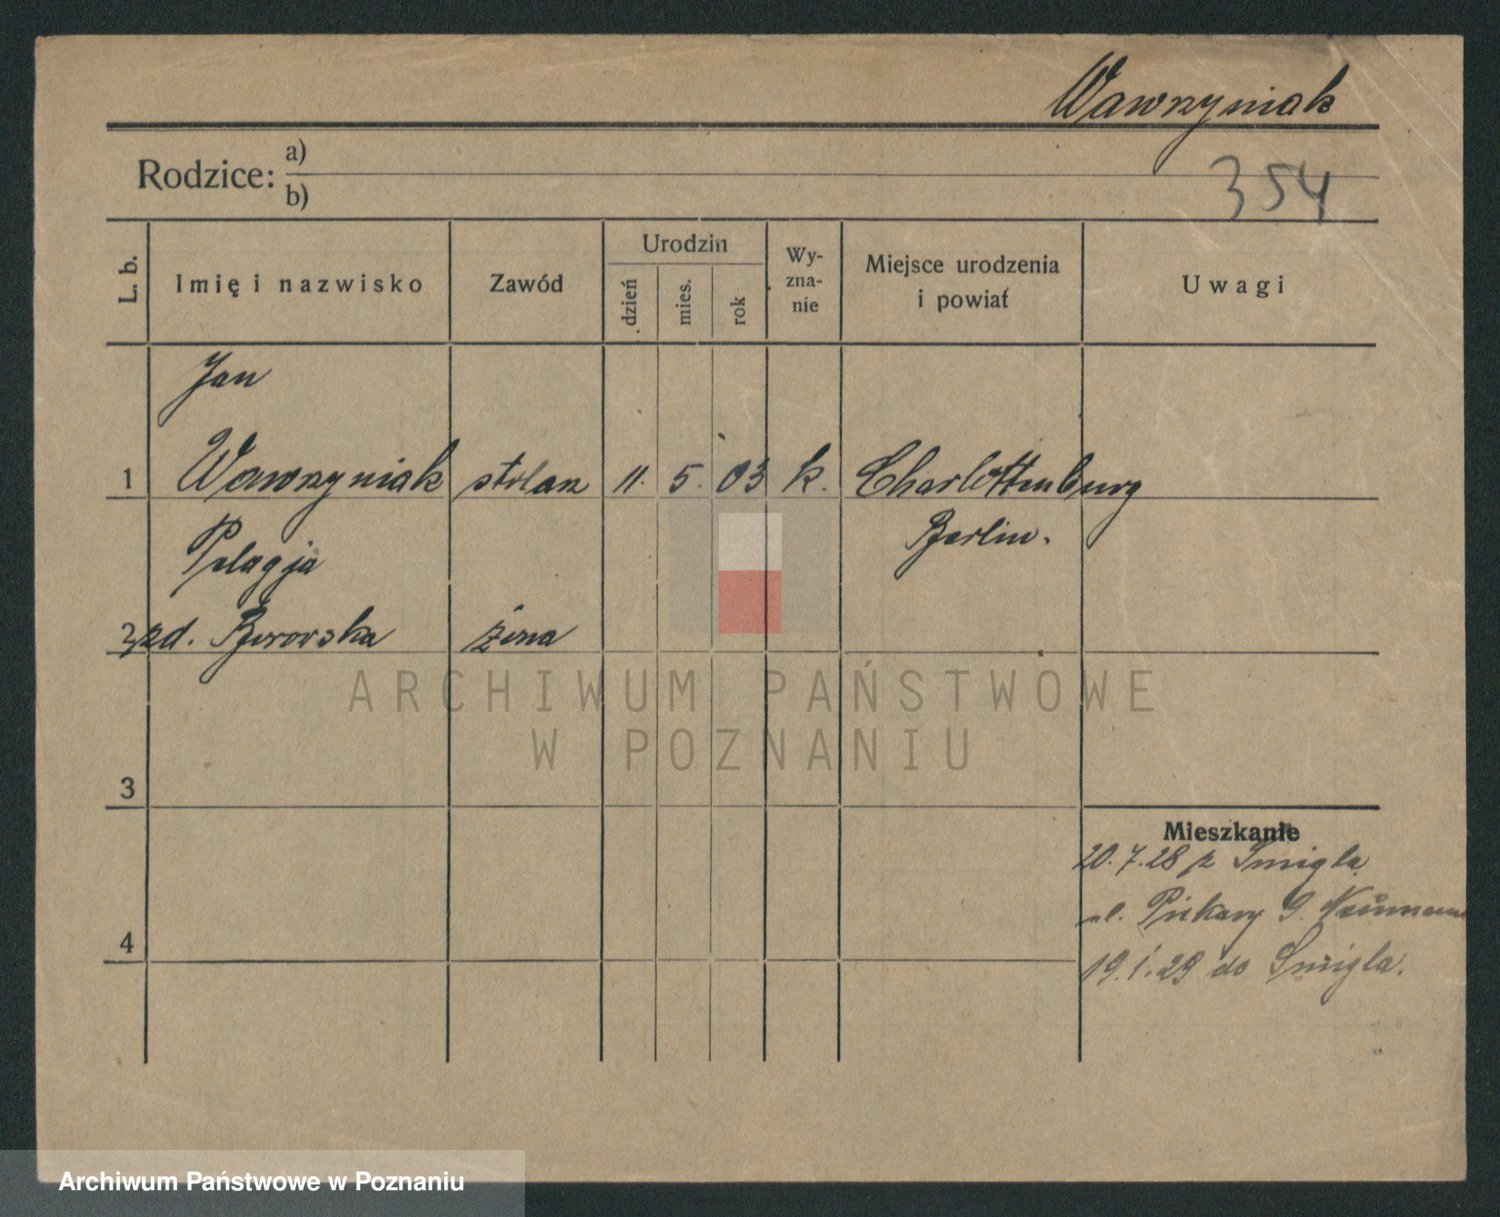 Wawrzyniak
Rodzice: a)
b)
354
L. b.
Imię i nazwisko
Zawód
Urodzin
dzień
mies.
rok
Wy-
zna-
nie
Miejsce urodzenia
i powiat
Uwagi
Jan
1 Wawrzyniak stolarz 11. 5. 03 k. Charlottenburg
Berlin.
Pelagja
2 zd. Borowska żona
ARCHIWUM PAŃSTWOWE
W POZNANIU
3
Mieszkanie
20.7.28 z Śmigla
ul. Piekary 9.
4
19.1.29 do Śmigla.
Archiwum Państwowe w Poznaniu